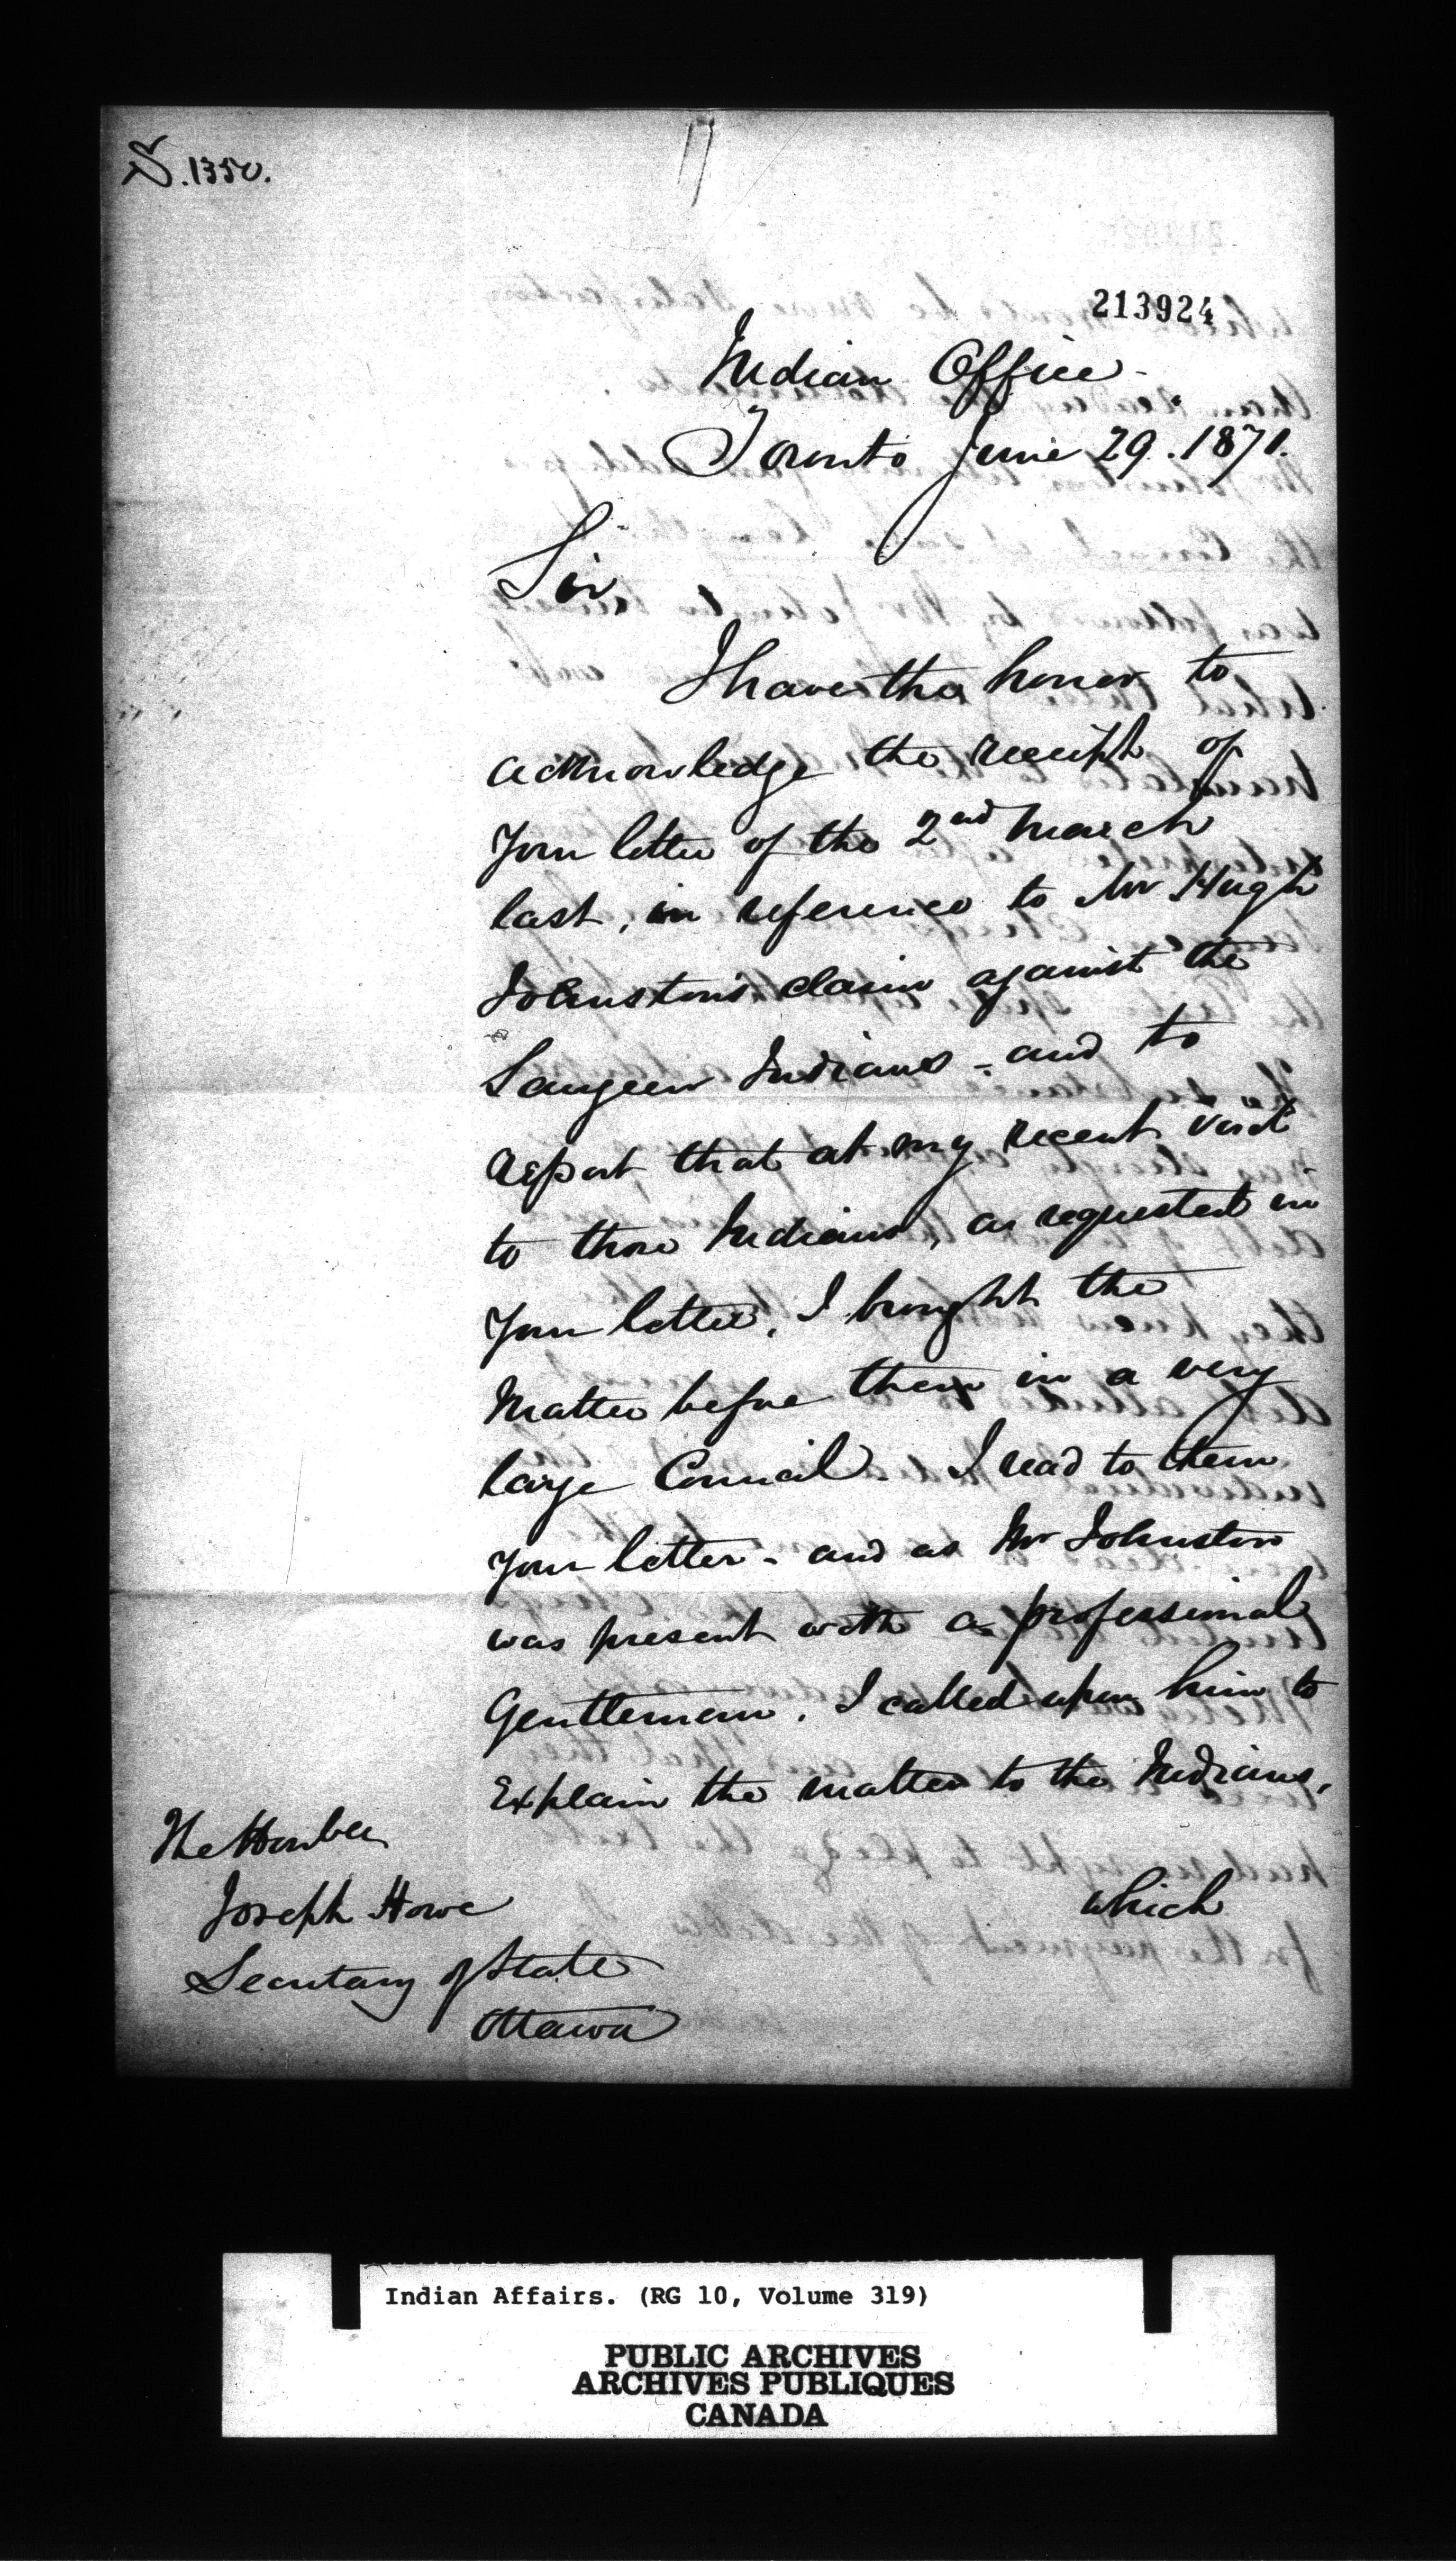 S.1350.
213924
Indian Office
Toronto June 29. 1871.
Sir,
I have the honor to
acknowledge the receipt of
Your letter of the 2nd March
last, in reference to Mr Hugh
Johnston's claim against the
Saugeen Indians - and to
report that at my recent visit
to those Indians, as requested in
Your letter, I brought the
Matter before them in a very
large Council. I read to them
Your letter - and as Mr Johnston
was present with a professional
Gentleman, I called upon him to
Explain the matter to the Indians,
which
The Honble
Joseph Howe
Secretary of State
Ottawa
Indian Affairs. (RG 10, Volume 319)
PUBLIC ARCHIVES
ARCHIVES PUBLIQUES
CANADA